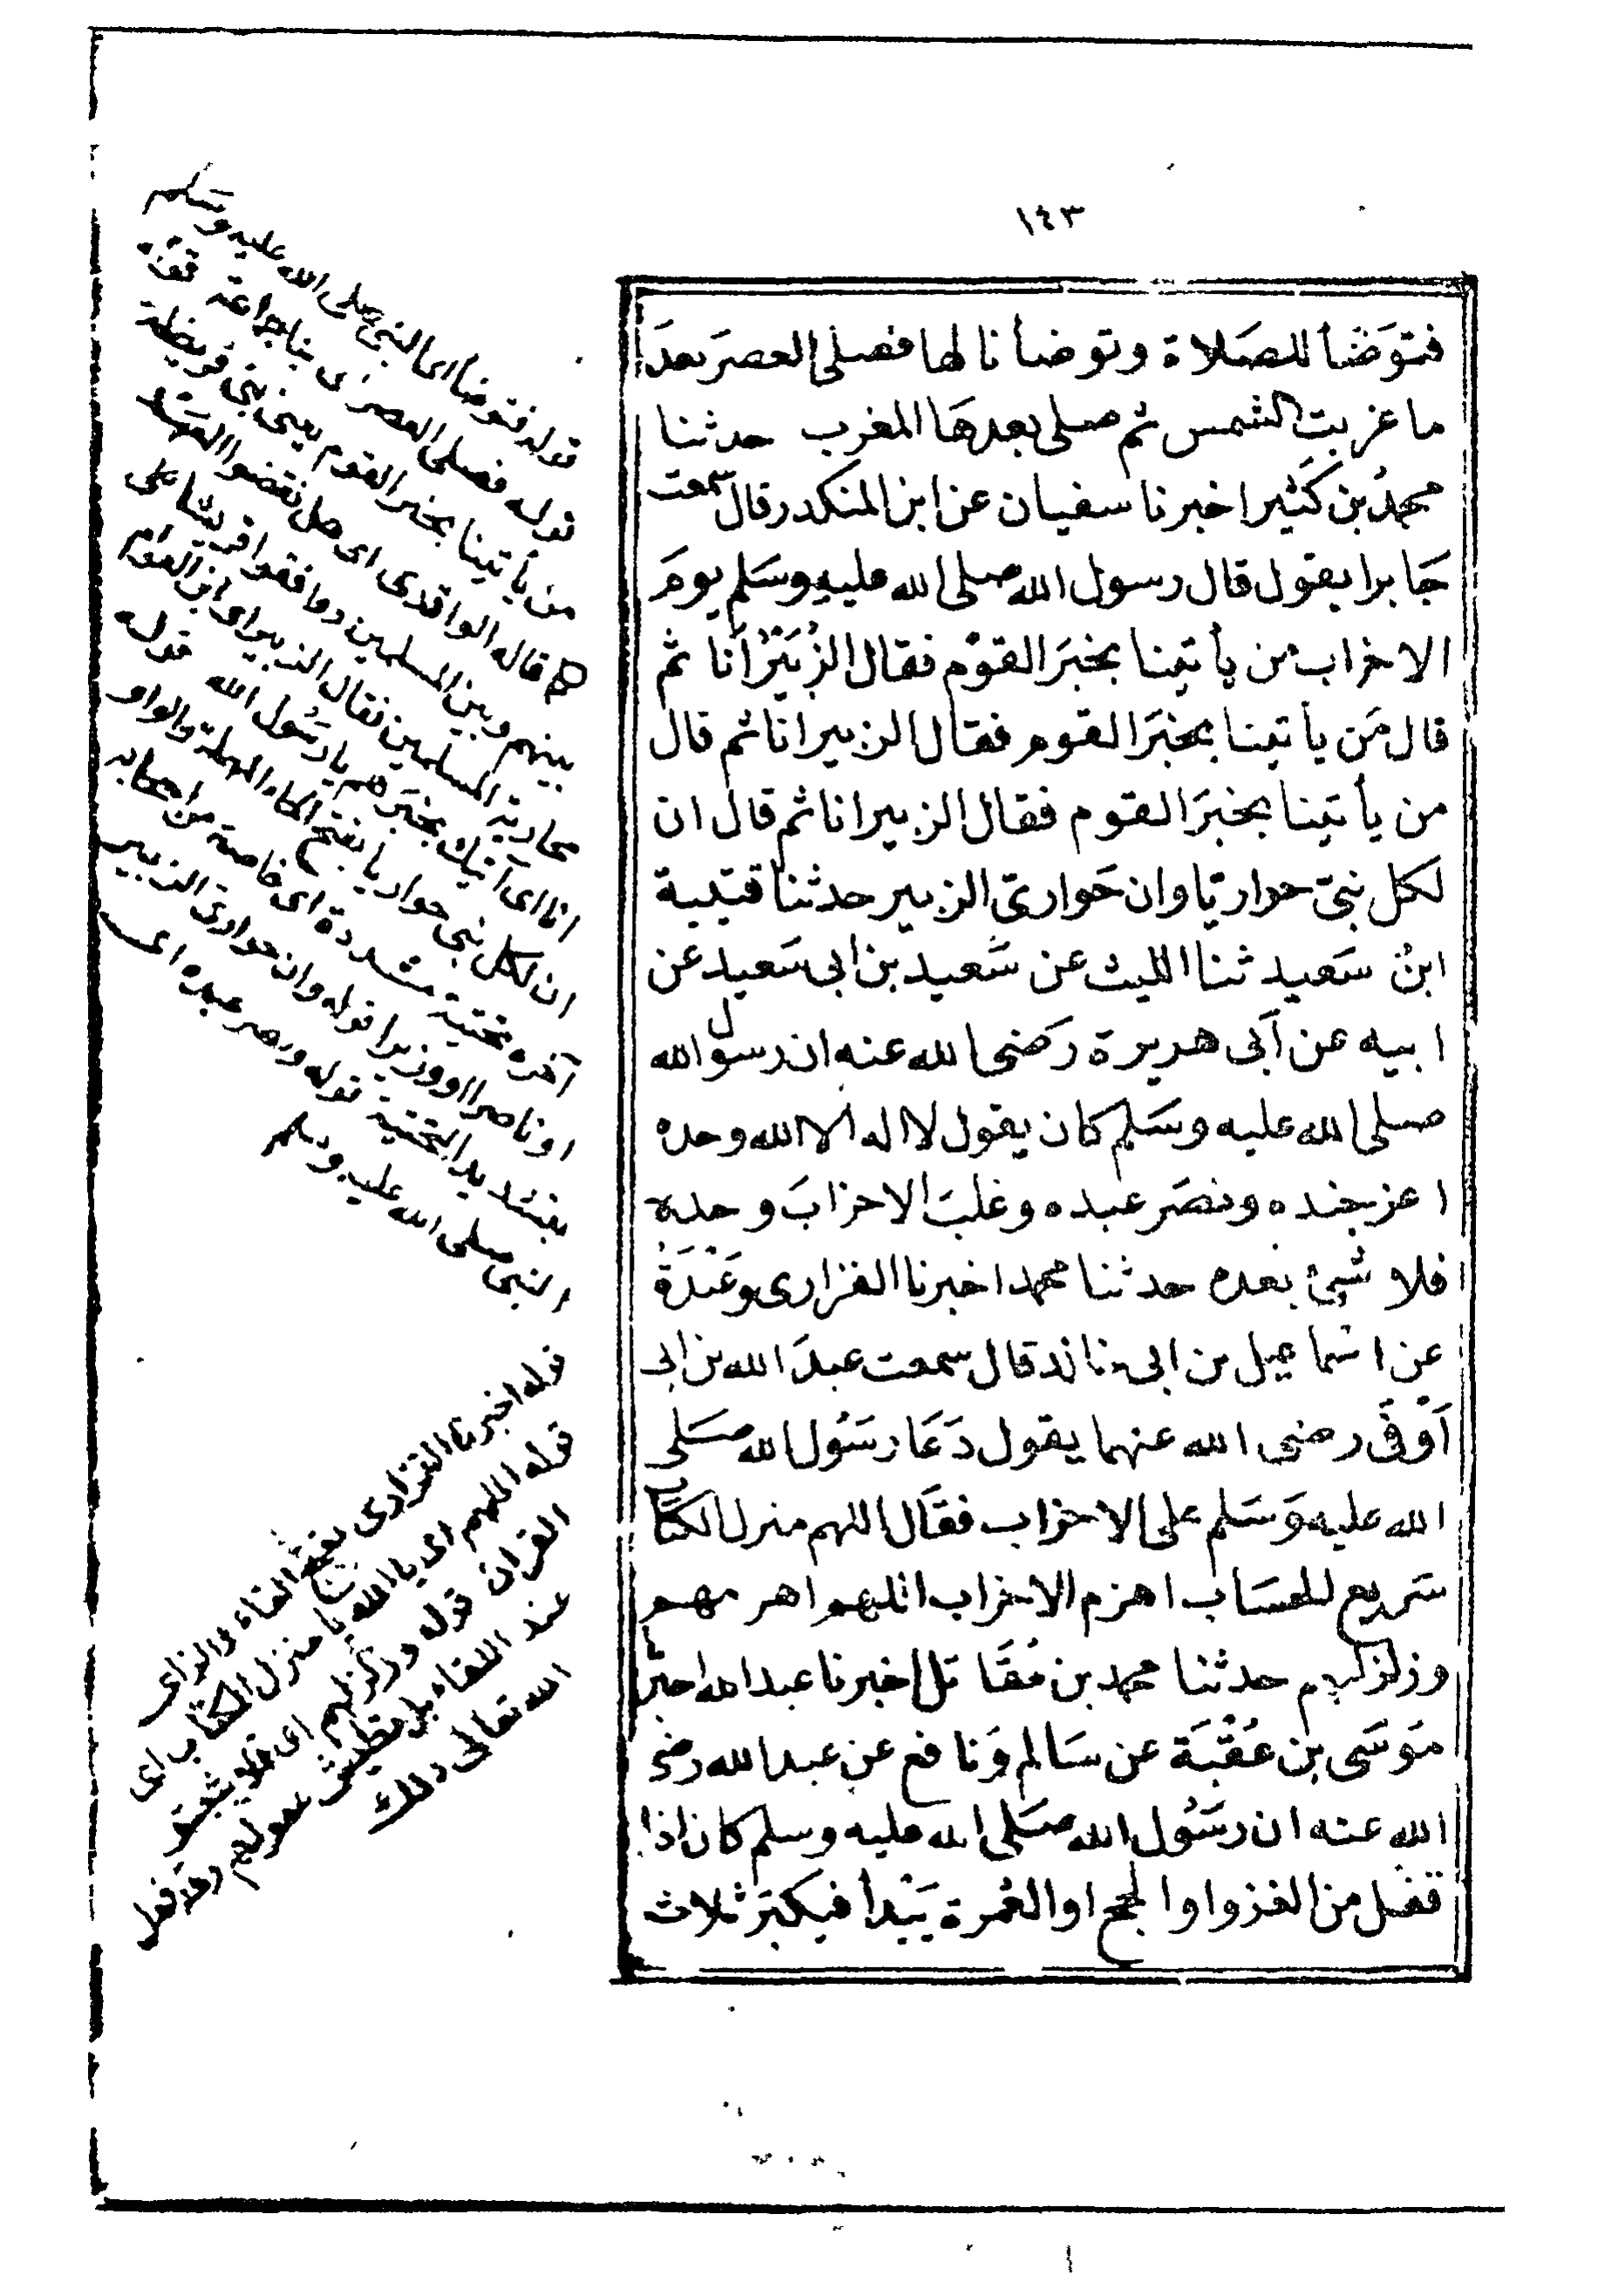 ١٤٣
فتوَضَّأ للصَلاة وتوضأنا لها فصلى العصرَ بعدَ
ما غربت الشمس ثم صلى بعدهَا المغرب حدثنا
محمدُ بن كَثير اخبرنا سفيان عن ابن المنكدر قال سمعت
جَابرا يقول قال رسول الله صلى الله عليهِ وسَلم يومَ
الاحزاب من يأتينا بخبَر القوْم فقال الزُبَيْرُ أنا ثم
قال مَن يأتينا بخبَر القوم فقال الزبير انا ثم قال
من يأتينا بخبَر القوم فقال الزبير انا ثم قال ان
لكل نبىّ حواريّا وان حَوارىّ الزبير حدثنا قتيبة
ابنُ سَعيد ثنا الليث عن سَعيد بن ابى سَعيد عن
ابيه عن أبى هريرة رَضى الله عنه ان رسول الله
صلى الله عليه وسَلم كان يقول لا اله الا الله وحده
اعز جنده ونصَر عبده وغلبَ الاحزابَ وحده
فلا شئ بعده حدثنا محمد اخبرنا الفزارى وعَبْدَةُ
عن اسماعيل بن ابى خالد قال سمعت عبدَ الله بن ابى
أوْفَى رضى الله عنهما يقول دَعَا رسَُول الله صَلى
الله عليه وَسَلم على الاحزاب فقَال اللهم منزل الكتاب
سَريع الحسَاب اهزم الاحزاب اللهم اهزمهم
وزلزلهم حدثنا محمد بن مُقَاتل اخبرنا عبد الله اخبرنا
مُوسَى بن عُقْبَة عن سَالم وَنافع عن عبد الله رضى
الله عنه ان رسَُول الله صَلى الله عليه وسلم كان اذا
قفل من الغزو او الحج او العُمرة يَبْدأ فيكبّر ثلاث
قوله فتوضأ اى النبى صلى الله عليه وسَلم
قوله فصلى العصر اى بنا جماعة قوله
من يأتينا بخبر القوم يعنى بنى قريظة
قاله الواقدى اى هل نقضوا العهد
بينهم وبين المسلمين ووافقوا قريشا على
محاربة المسلمين فقال الزبير اى ابن العوام
انا اى آتيك بخبَرهم يا رسُول الله قوله
ان لكل نبى حواريا بفتح الحاء المهملة والواو
آخره تحتية مشددة اى خاصة من اصحابه
او ناصرا او وزيرا قوله وان حوارى الزبير
بتشديد التحتية قوله ونصر عبده اى
النبى صلى الله عليه وسلم
قوله اخبرنا الفزارى بفتح الفاء والزاى
قوله اللهم اى يا الله يا منزل الكتاب اى
القرآن قوله وزلزلهم اى فلا يثبتوا
عند اللقاء بل تطيش عقولهم وقد فعل
الله تعالى ذلك